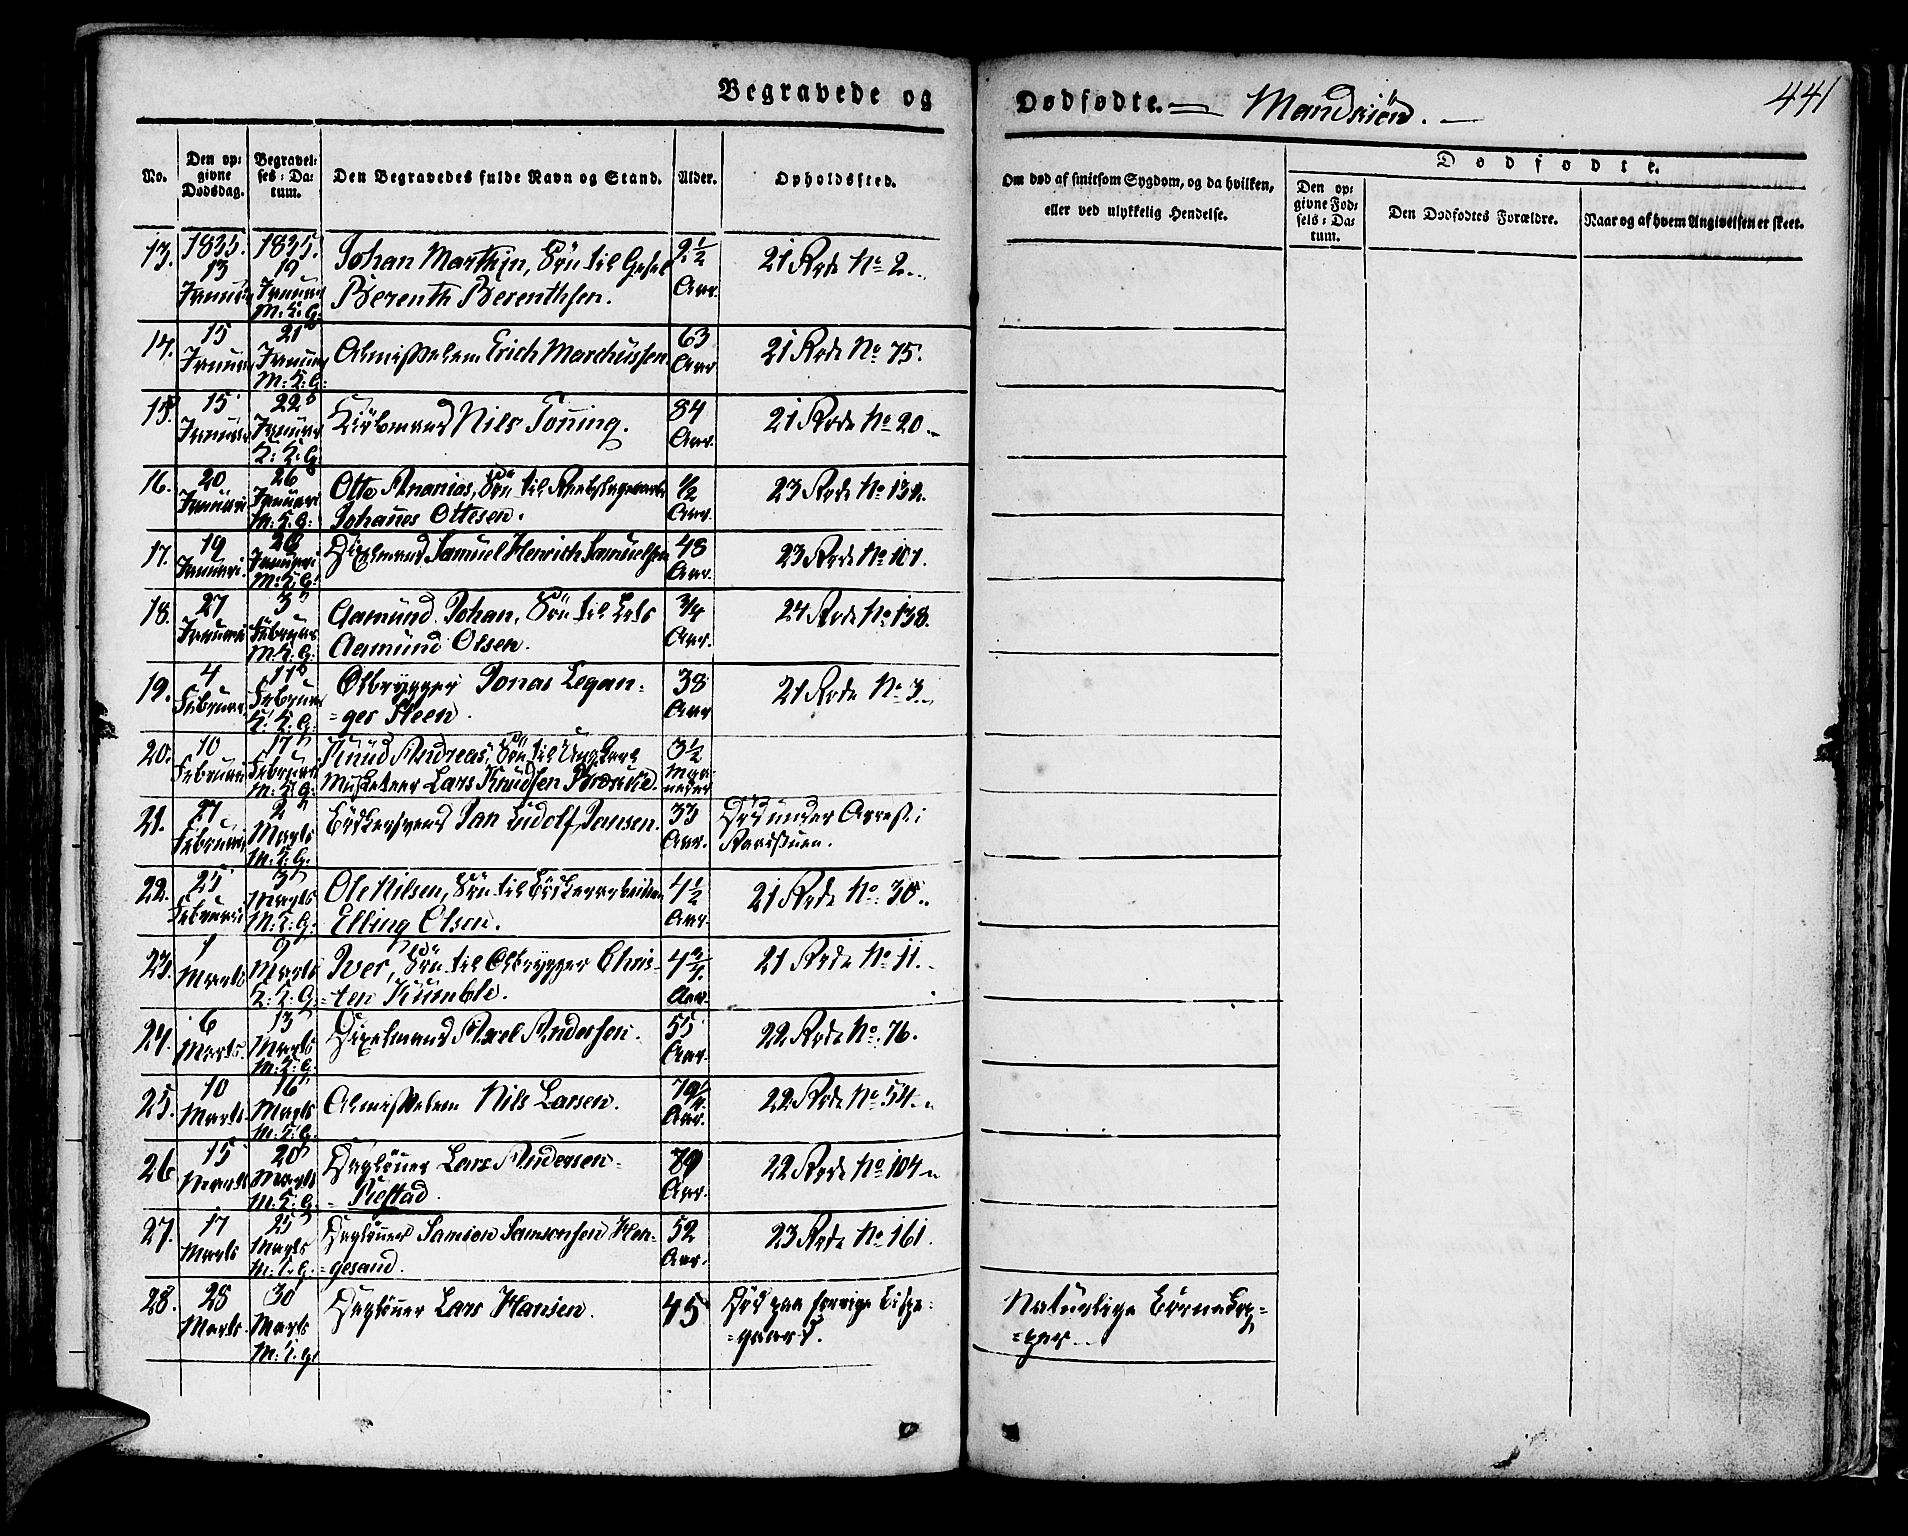 Begravede og Dødfødte. — Mandkiön. —
441
No.
Den op-
givne
Dødsdag.
Begravel-
ses-Da-
tum.
Den Begravedes fulde Navn og Stand.
Alder.
Opholdssted.
Om død af smitsom Sygdom, og da hvilken,
eller ved ulykkelig Hendelse.
Dødfødte.
Den op-
givne Fød-
sels-Da-
tum.
Den Dødfødtes Forældre.
Naar og af hvem Angivelsen er skeet.
13. 1835. 13 Januari 1835. 19 Januar M. K. G. Johan Marthin, Sön til Gesel 2½ Aar. 21 Rode No 2.
Berenth Berenthsen.
14. 15 Januar 21 Januar M: K: G: Almisselem Erich Marchussen 63 Aar 21 Rode No 75.
15. 15 Januar 22 Januar K: K: G: Kiöbmand Nils Toning. 84 Aar. 21 Rode No 20.
16. 20 Januari 26 Januari M: K: G: Otto Ananias, Sön til ½ Aar. 23 Rode No 132.
Johanes Ottesen.
17. 19 Januari. 26 Januari M: K: G: Samuel Henrich Samuelsen 48 Aar. 23 Rode No 107.
18. 27 Januari 3 Februar M: K: G: Aamund Johan, Sön til Lods ¾ Aar. 24 Rode No 138.
Aamund Olsen.
19. 4 Februar. 11 Februar K: K: G: Ølbrygger Jonas Legan- 38 Aar 21 Rode No 3.
=ger Steen.
20. 10 Februari 17 Februari M: K: G: Knud Andreas, Sön til 3½ Maa-
neder
Musketeer Lars Knudsen
21. 27 Februari 2 Marts M: K: G. Jan Ludolf Jansen. 33 Aar. Död under Arrest i
22. 25 Februari 3 Marts M: K: G: Ole Nilsen, Sön til 4½ Aar. 21 Rode No. 30.
Elling Olsen.
23. 1 Marts 9 Marts K: K: G: Iver, Sön til Ølbrygger Chris- 4¾ Aar. 21 Rode No 11.
=ten Kumble.
24. 6 Marts. 13 Marts M: K: G: Axel Andersen. 55 Aar. 22 Rode No. 76.
25. 10 Marts. 16 Marts M: K: G. Almisselem Nils Larsen. Aar. 22 Rode No 54.
26 15 Marts 20 Marts M: K: G. Daglönner Lars Andersen- 79 Aar. 22 Rode No 104
27. 17 Marts 25 Marts M: K. G. Daglönner Samson Samsonsen Hen- 52 Aar. 23 Rode No 161.
=gesand.
28. 25 Marts. 30 Marts M: K. G. Daglönner Lars Hansen. 45 Död paa forrige Bispe- Naturlige Börnekop-
=gaard. =per.